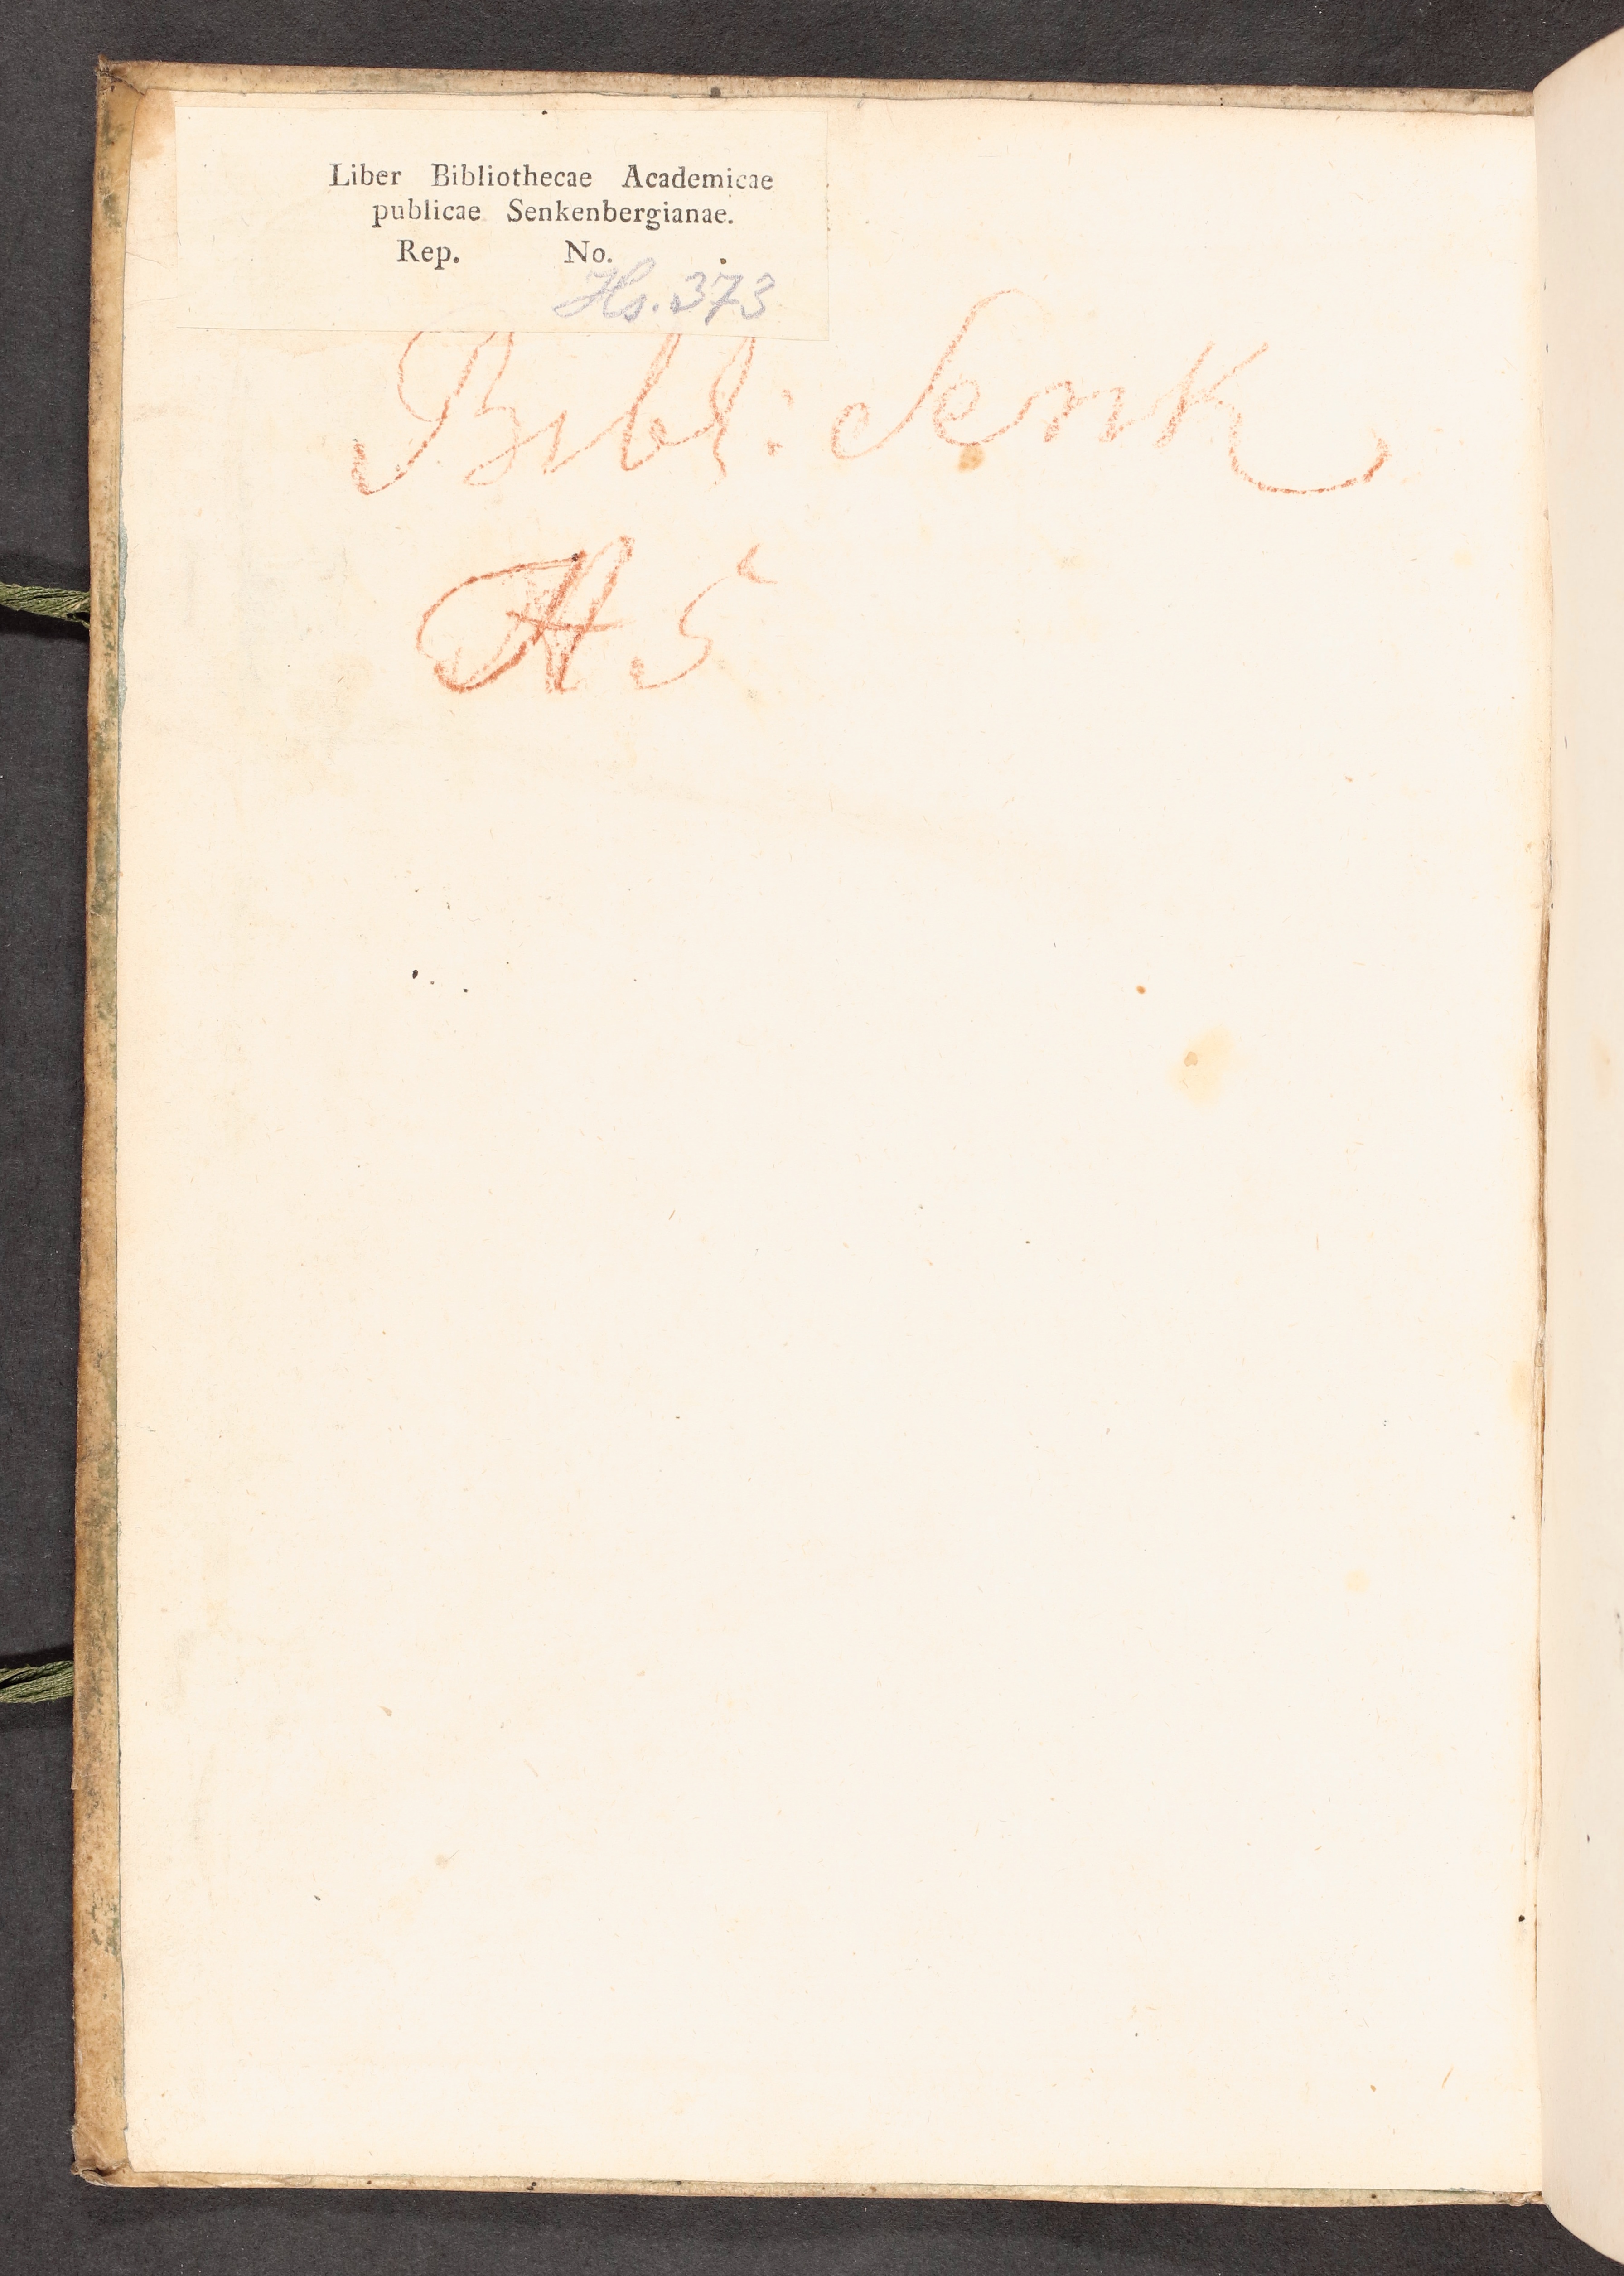 Liber Bibliothecae Academicae
publicae Senkenbergianae.
Rep. No.
Hs. 373
Bibl: Senk
A 5